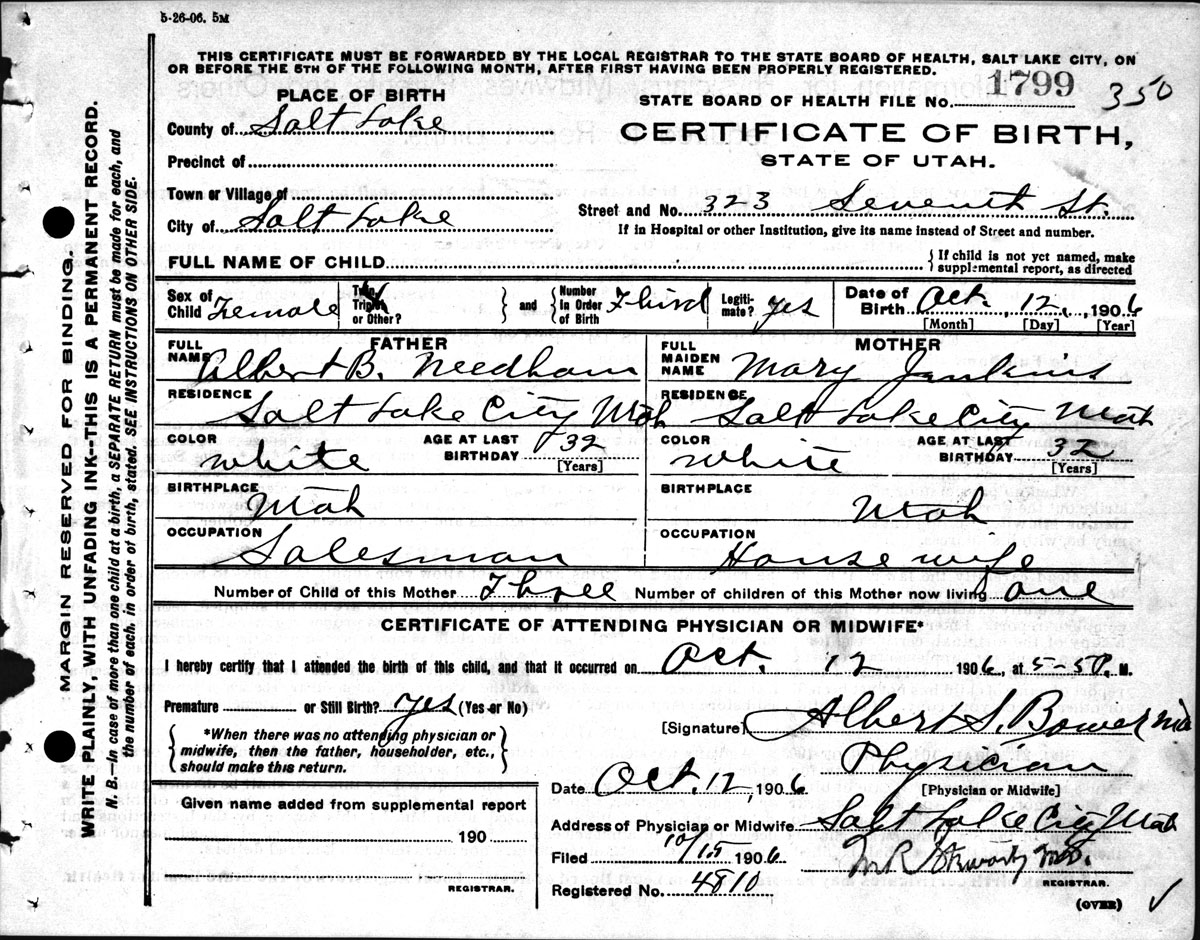 5-26-06. 5M
THIS CERTIFICATE MUST BE FORWARDED BY THE LOCAL REGISTRAR TO THE STATE BOARD OF HEALTH, SALT LAKE CITY, ON
OR BEFORE THE 5TH OF THE FOLLOWING MONTH, AFTER FIRST HAVING BEEN PROPERLY REGISTERED.
MARGIN RESERVED FOR BINDING.
WRITE PLAINLY, WITH UNFADING INK--THIS IS A PERMANENT RECORD.
N. B.--In case of more than one child at a birth, a SEPARATE RETURN must be made for each, and
the number of each, in order of birth, stated. SEE INSTRUCTIONS ON OTHER SIDE.
PLACE OF BIRTH
County of Salt Lake
Precinct of
Town or Village of
City of Salt Lake
STATE BOARD OF HEALTH FILE No. 1799 350
CERTIFICATE OF BIRTH,
STATE OF UTAH.
Street and No. 323 Seventh St.
If in Hospital or other Institution, give its name instead of Street and number.
FULL NAME OF CHILD
{ If child is not yet named, make
supplemental report, as directed
Sex of Child Female
Twin Triplet or Other?
and
Number in Order of Birth Third
Legiti-mate? Yes
Date of Birth Oct. 12, 1906
[Month] [Day] [Year]
FATHER
FULL NAME Albert B. Needham
RESIDENCE Salt Lake City Utah
COLOR White AGE AT LAST BIRTHDAY 32 [Years]
BIRTHPLACE Utah
OCCUPATION Salesman
MOTHER
FULL MAIDEN NAME Mary Jenkins
RESIDENCE Salt Lake City Utah
COLOR White AGE AT LAST BIRTHDAY 32 [Years]
BIRTHPLACE Utah
OCCUPATION Housewife
Number of Child of this Mother Three Number of children of this Mother now living One
CERTIFICATE OF ATTENDING PHYSICIAN OR MIDWIFE*
I hereby certify that I attended the birth of this child, and that it occurred on Oct. 12 1906, at 5-5 P. M.
Premature or Still Birth? Yes (Yes or No)
*When there was no attending physician or
midwife, then the father, householder, etc.,
should make this return.
[Signature] Albert S. Bower MD
Physician
[Physician or Midwife]
Date Oct. 12, 1906
Address of Physician or Midwife Salt Lake City Utah
Filed 10/15 1906 M R MD.
REGISTRAR.
Registered No. 4810
(OVER)
Given name added from supplemental report
190
REGISTRAR.